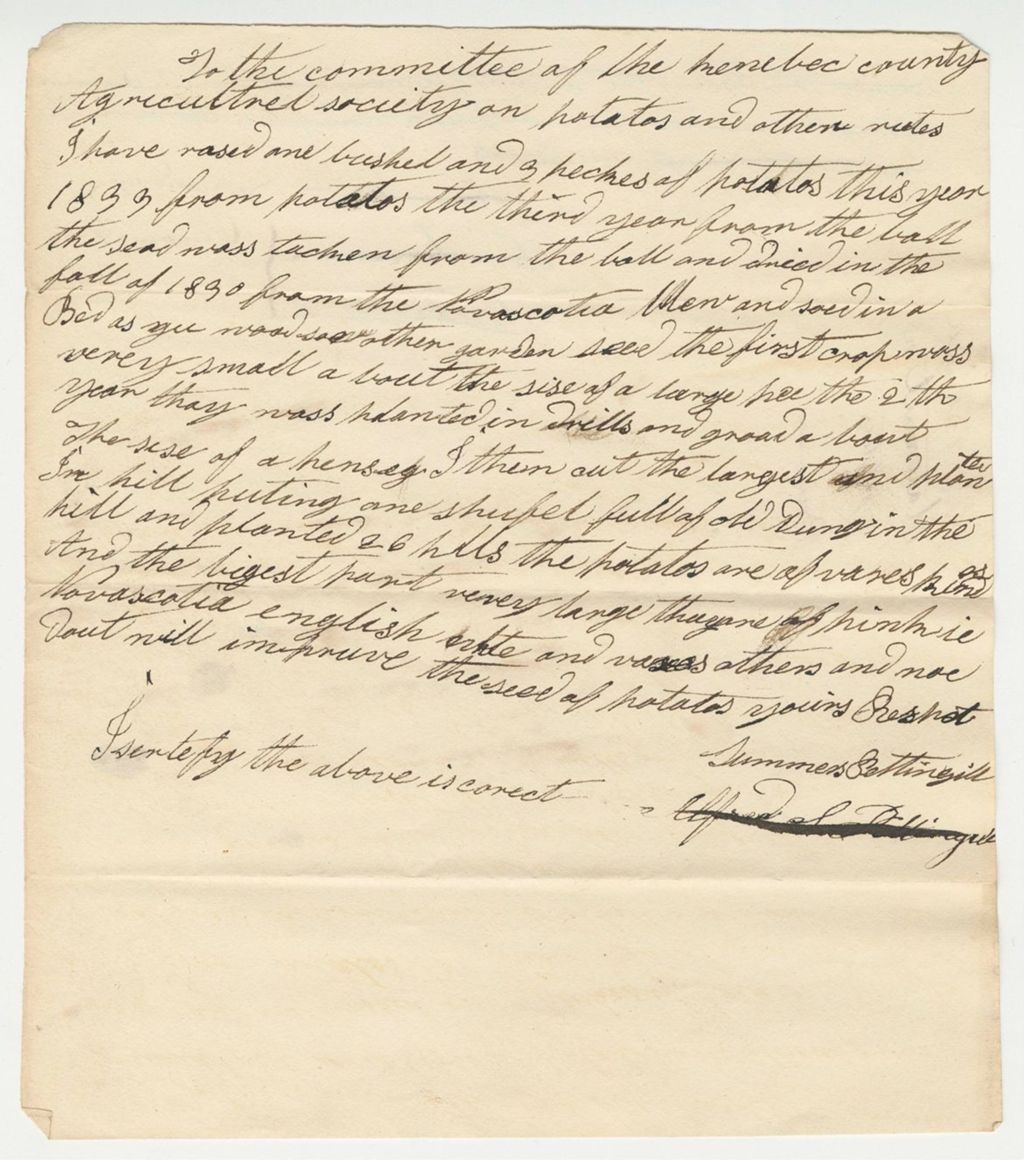 To the committee of the kenebec county
Agricultrel society on potatos and other rutes
I have rased one bushed and 3 peckes of potatos this year
1833 from potatos the third year from the ball
the sead wass tacken from the ball and dried in the
fall of 1830 from the Novascotia blew and soed in a
Bed as yu wood sow other garden seed the first crop wass
verey small a bout the sise of a large pee the 2 th
year thay wass planted in drills and groad a bout
the sise of a hens eg I then cut the largest and planted
In hill puting one shufel full of old Dung in the
hill and planted 26 hills the potatos are of vares kind
And the bigest part verey large thay are of pink ie
Novascotia english and others and noe
Dout will impruve the seed of potatos yours Respet
Summers Pettingill
I sertefy the above is corect
Alfred Pettingill